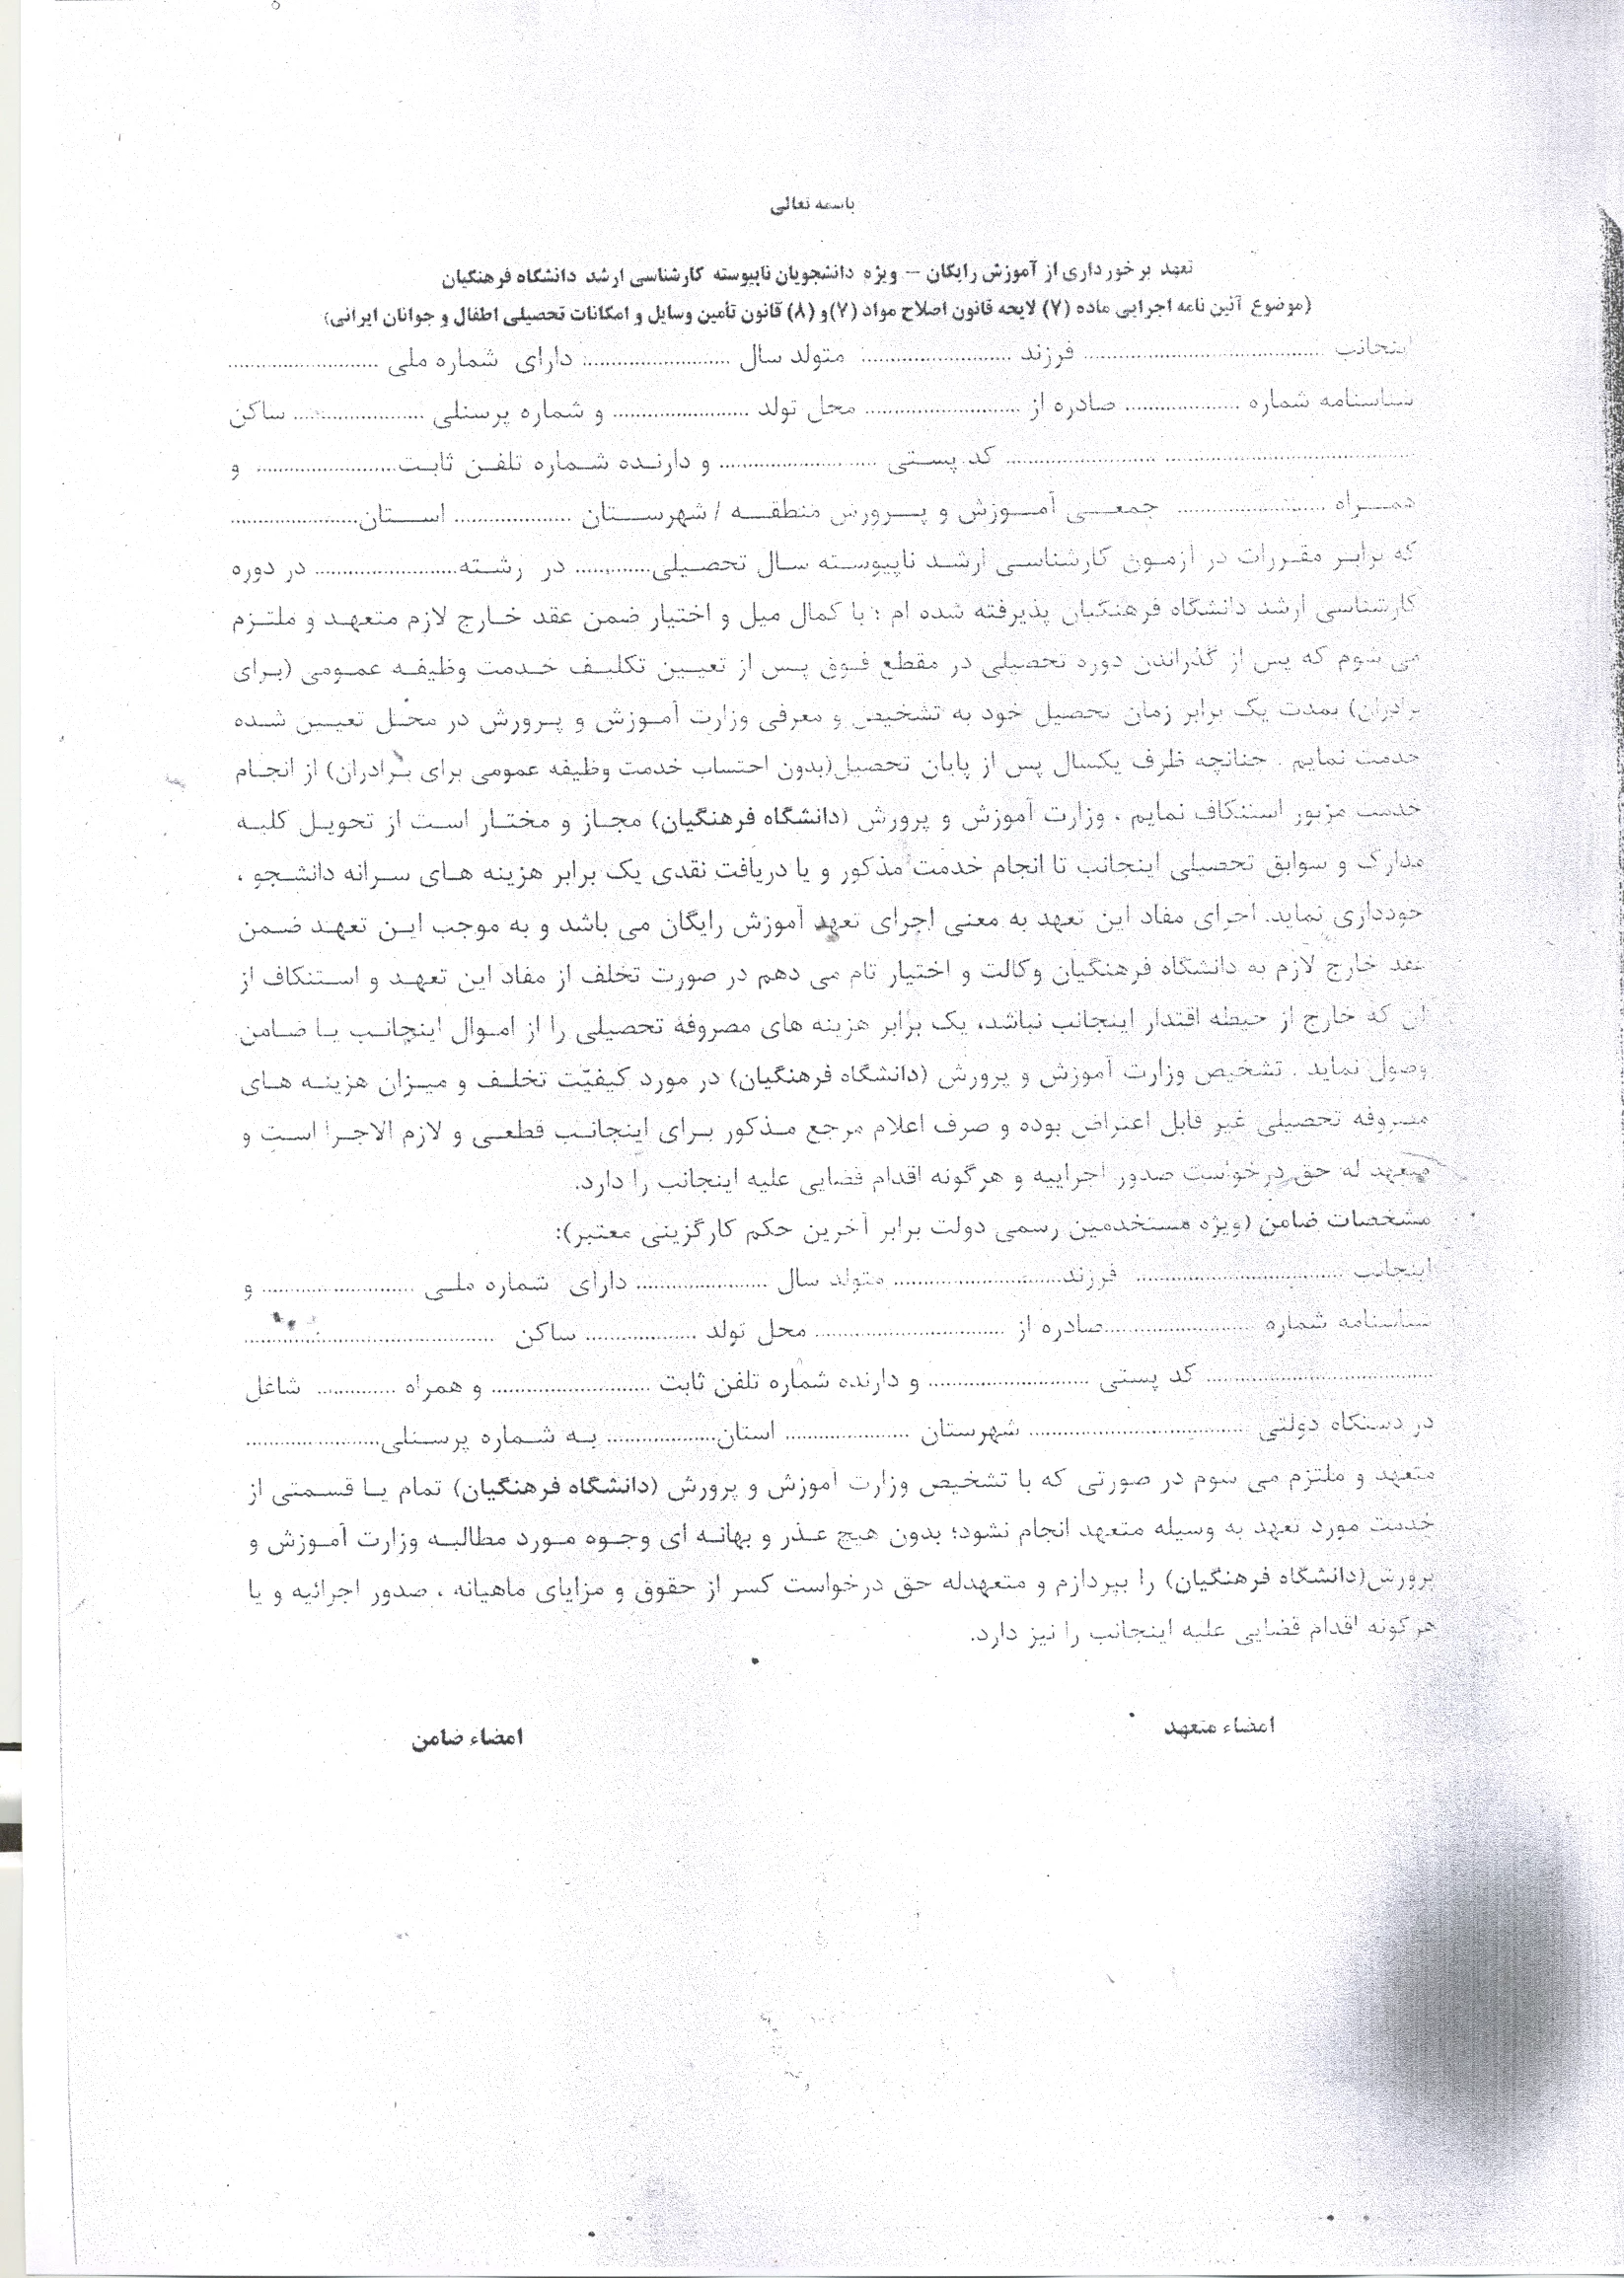 باسمه تعالی
تعهد برخورداری از آموزش رایگان – ویژه دانشجویان ناپیوسته کارشناسی ارشد دانشگاه فرهنگیان
(موضوع آئین نامه اجرایی ماده (۷) لایحه قانون اصلاح مواد (۷) و (۸) قانون تأمین وسایل و امکانات تحصیلی اطفال و جوانان ایرانی)
اینجانب .................................... فرزند ........................ متولد سال ........................ دارای شماره ملی ........................
شناسنامه شماره .................. صادره از ........................ محل تولد ...................... و شماره پرسنلی ..................... ساکن
................................................................ کد پستی ........................ و دارنده شماره تلفن ثابت...................... و
همراه ........................ جمعی آموزش و پرورش منطقه / شهرستان ................... استان.....................
که برابر مقررات در آزمون کارشناسی ارشد ناپیوسته سال تحصیلی............ در رشته....................... در دوره
کارشناسی ارشد دانشگاه فرهنگیان پذیرفته شده ام ؛ با کمال میل و اختیار ضمن عقد خارج لازم متعهد و ملتزم
می شوم که پس از گذراندن دوره تحصیلی در مقطع فوق پس از تعیین تکلیف خدمت وظیفه عمومی (برای
برادران) بمدت یک برابر زمان تحصیل خود به تشخیص و معرفی وزارت آموزش و پرورش در محل تعیین شده
خدمت نمایم . چنانچه ظرف یکسال پس از پایان تحصیل(بدون احتساب خدمت وظیفه عمومی برای برادران) از انجام
خدمت مزبور استنکاف نمایم ، وزارت آموزش و پرورش (دانشگاه فرهنگیان) مجاز و مختار است از تحویل کلیه
مدارک و سوابق تحصیلی اینجانب تا انجام خدمت مذکور و یا دریافت نقدی یک برابر هزینه های سرانه دانشجو ،
خودداری نماید. اجرای مفاد این تعهد به معنی اجرای تعهد آموزش رایگان می باشد و به موجب این تعهد ضمن
عقد خارج لازم به دانشگاه فرهنگیان وکالت و اختیار تام می دهم در صورت تخلف از مفاد این تعهد و استنکاف از
آن که خارج از حیطه اقتدار اینجانب نباشد، یک برابر هزینه های مصروفهٔ تحصیلی را از اموال اینجانب یا ضامن
وصول نماید . تشخیص وزارت آموزش و پرورش (دانشگاه فرهنگیان) در مورد کیفیّت تخلف و میزان هزینه های
مصروفه تحصیلی غیر قابل اعتراض بوده و صرف اعلام مرجع مذکور برای اینجانب قطعی و لازم الاجرا است و
متعهد له حق درخواست صدور اجراییه و هرگونه اقدام قضایی علیه اینجانب را دارد.
مشخصات ضامن (ویژه مستخدمین رسمی دولت برابر آخرین حکم کارگزینی معتبر):
اینجانب ................................ فرزند.......................... متولد سال .................... دارای شماره ملی ....................... و
شناسنامه شماره ......................صادره از ............................. محل تولد ................. ساکن ......................................
................................... کد پستی ........................ و دارنده شماره تلفن ثابت ........................ و همراه ............ شاغل
در دستگاه دولتی .................................. شهرستان ................... استان................. به شماره پرسنلی.....................
متعهد و ملتزم می شوم در صورتی که با تشخیص وزارت آموزش و پرورش (دانشگاه فرهنگیان) تمام یا قسمتی از
خدمت مورد تعهد به وسیله متعهد انجام نشود؛ بدون هیچ عذر و بهانه ای وجوه مورد مطالبه وزارت آموزش و
پرورش(دانشگاه فرهنگیان) را بپردازم و متعهدله حق درخواست کسر از حقوق و مزایای ماهیانه ، صدور اجرائیه و یا
هرگونه اقدام قضایی علیه اینجانب را نیز دارد.
امضاء متعهد
امضاء ضامن